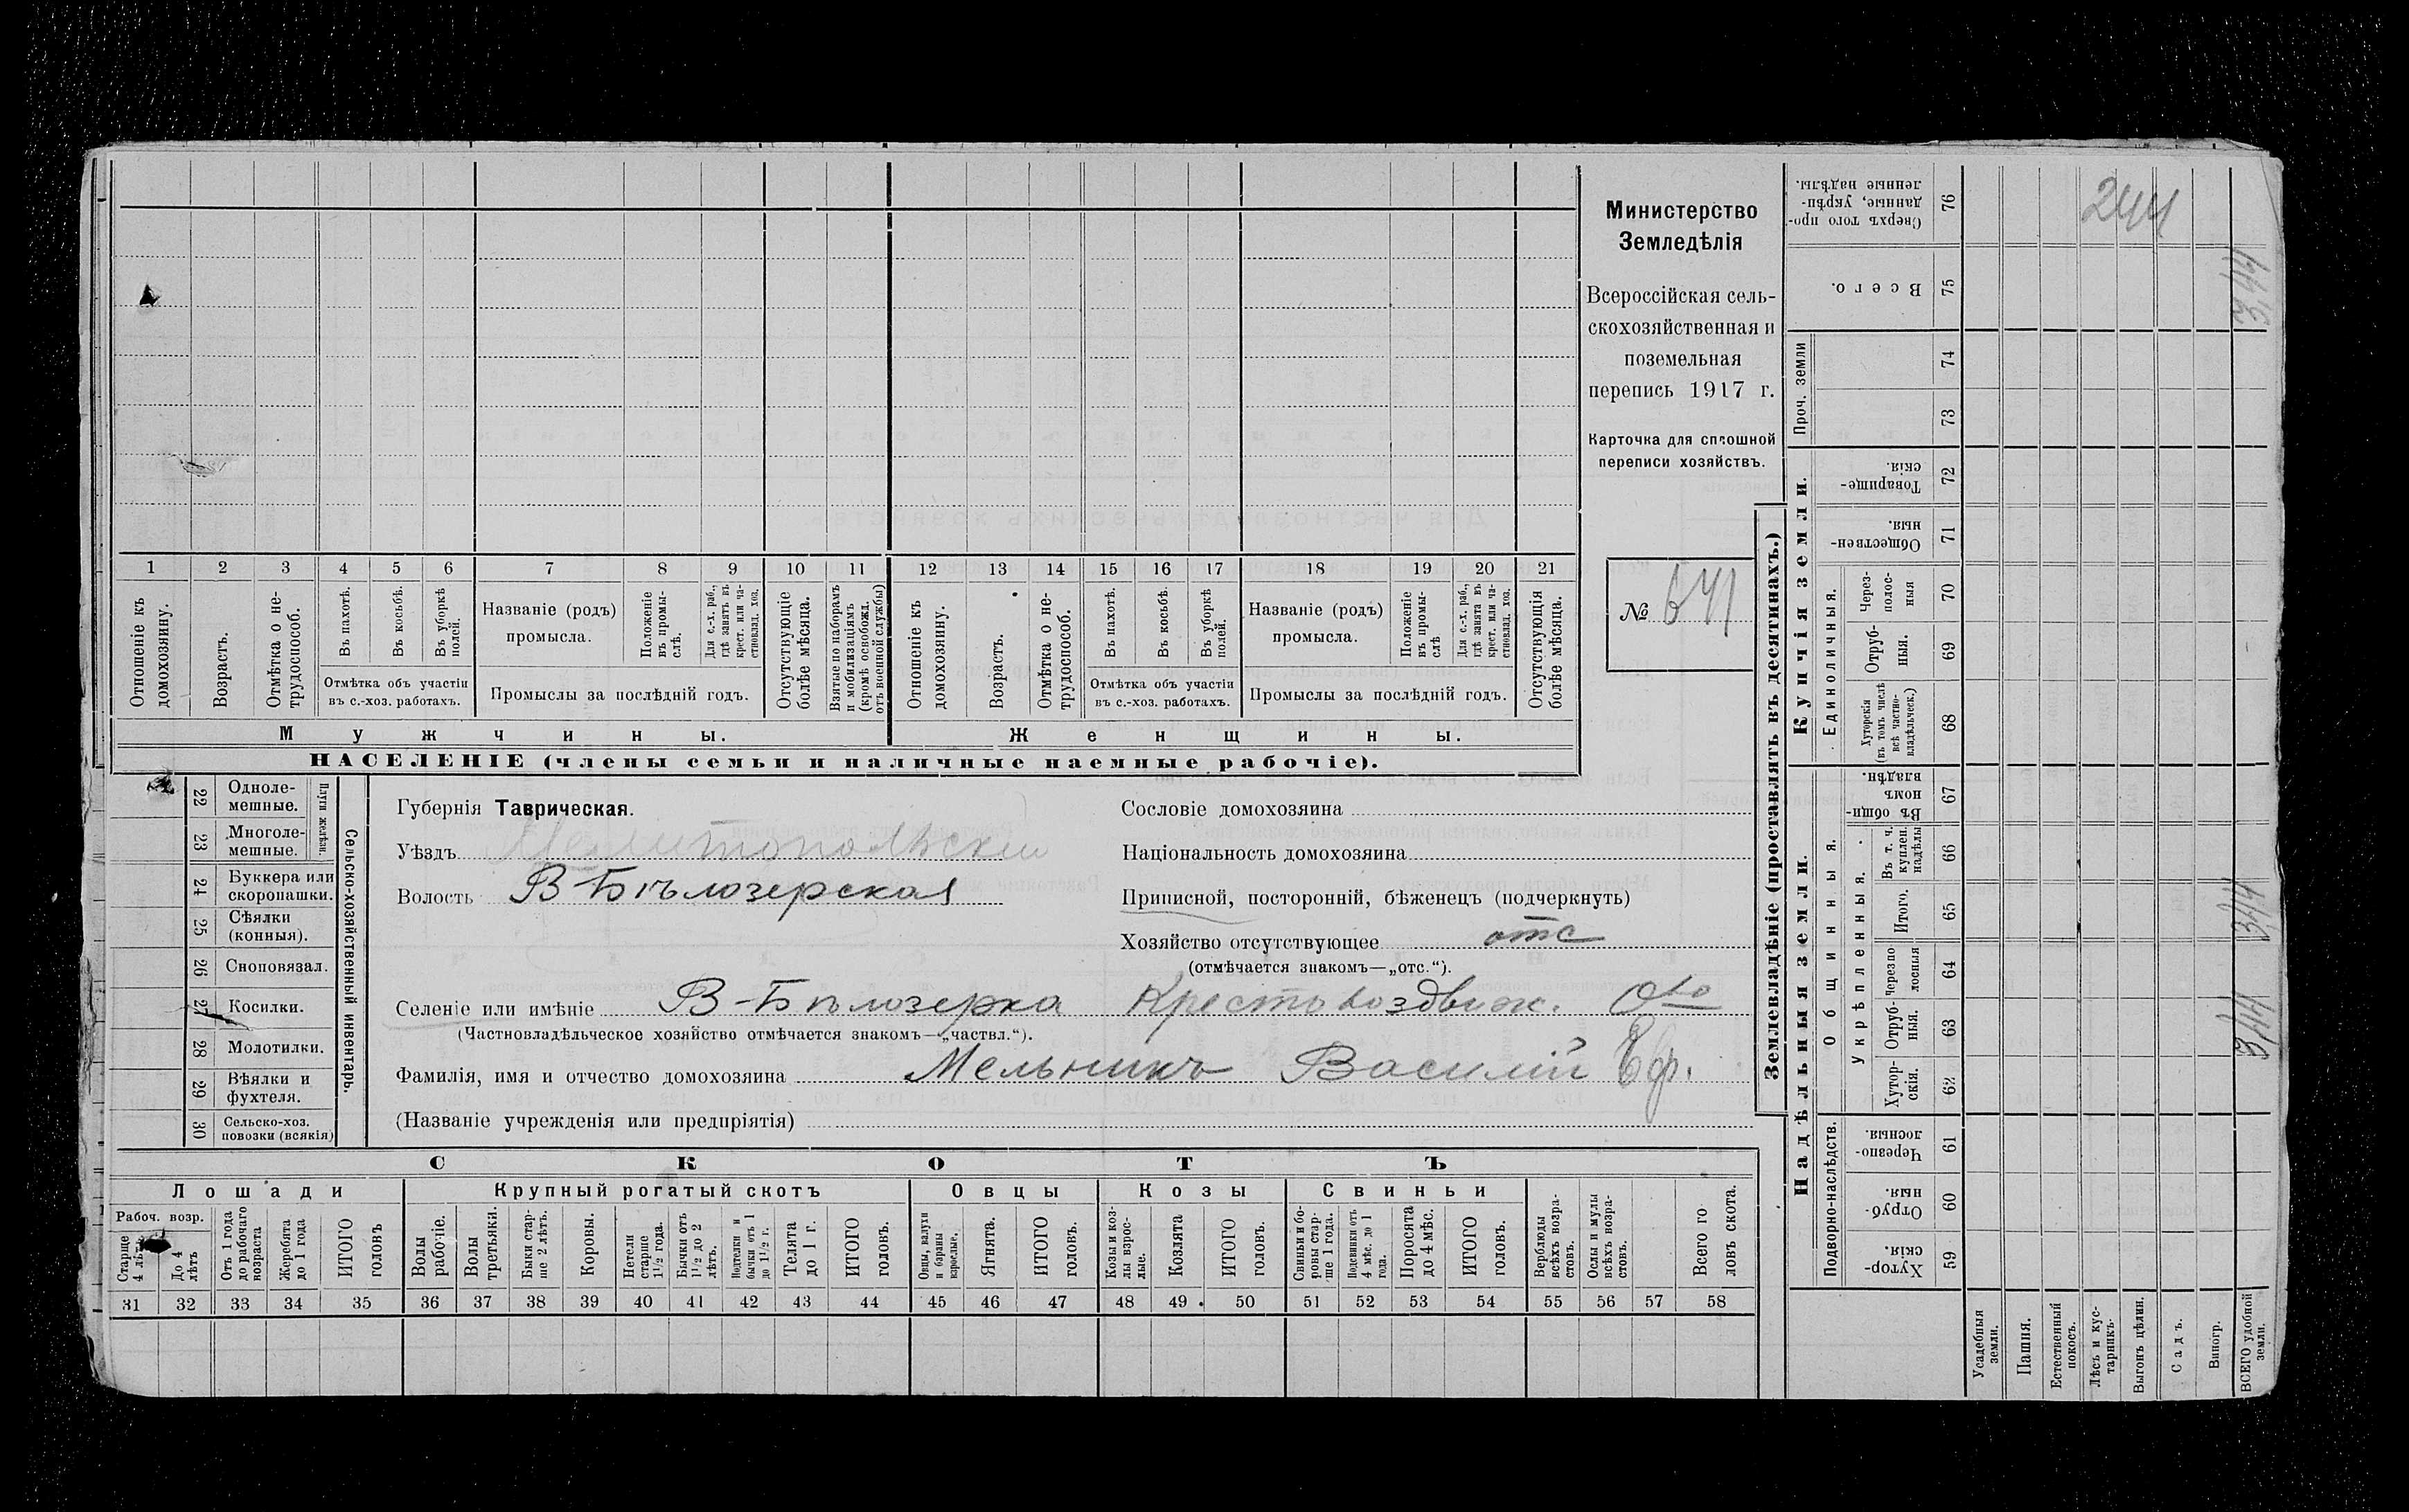 Министерство
Земледѣлія
Всероссійская сель-
скохозяйственная и
поземельная
перепись 1917 г.
Карточка для сплошной
переписи хозяйствъ.
№ 641
1 2 3 4 5 6 7 8 9 10 11 12 13 14 15 16 17 18 19 20 21
Отношеніе къ домохозяину.
Возрастъ.
Отмѣтка о не-трудоспособ.
Въ пахотѣ.
Въ косьбѣ.
Въ уборкѣ полей.
Отмѣтка объ участіи
въ с.-хоз. работахъ.
Названіе (родъ)
промысла.
Положеніе въ промы-слѣ.
Для с.-х. раб., гдѣ занятъ въ крест. или ча-стновлад. хоз.
Промыслы за послѣдній годъ.
Отсутствующіе болѣе мѣсяца.
Взятые по наборамъ и мобилизаціямъ (кромѣ освобожд. отъ военной службы)
Отношеніе къ домохозяину.
Возрастъ.
Отмѣтка о не-трудоспособ.
Въ пахотѣ.
Въ косьбѣ.
Въ уборкѣ полей.
Отмѣтка объ участіи
въ с.-хоз. работахъ.
Названіе (родъ)
промысла.
Положеніе въ промы-слѣ
Для с.-х. раб., гдѣ занята въ крест. или ча-стновлад. хоз.
Промыслы за послѣдній годъ.
Отсутствующія болѣе мѣсяца.
Мужчины. Женщины.
НАСЕЛЕНІЕ (члены семьи и наличные наемные рабочіе).
22 Одноле-мешные.
23 Многоле-мешные.
Плуги желѣзн.
24 Буккера или скоропашки.
25 Сѣялки (конныя).
26 Сноповязал.
27 Косилки.
28 Молотилки.
29 Вѣялки и фухтеля.
30 Сельско-хоз. повозки (всякія)
Сельско-хозяйственный инвентарь.
Губернія Таврическая.
Уѣздъ Мелитопольскій
Волость В-Бѣлозерская
Сословіе домохозяина
Національность домохозяина
Приписной, посторонній, бѣженецъ (подчеркнуть)
Хозяйство отсутствующее отс
(отмѣчается знакомъ—„отс.“).
Селеніе или имѣніе В-Бѣлозерка Крестовоздвиж. О-во
(Частновладѣльческое хозяйство отмѣчается знакомъ—„частвл.“).
Фамилія, имя и отчество домохозяина Мельникъ Василій Еф.
(Названіе учрежденія или предпріятія)
СКОТЪ
Лошади Крупный рогатый скотъ Овцы Козы Свиньи
Рабоч. возр.
Старше 4 лѣтъ
До 4 лѣтъ
Отъ 1 года до рабочаго возраста
Жеребята до 1 года
ИТОГО головъ
Волы рабочіе.
Волы третьяки.
Быки стар-ше 2 лѣтъ.
Коровы.
Нетели старше 1 1/2 года.
Бычки отъ 1 1/2 до 2 лѣтъ.
Подтелки и бычки отъ 1 до 1 1/2 г.
Телята до 1 г.
ИТОГО головъ.
Овцы, валухи и бараны взрослые.
Ягнята.
ИТОГО головъ.
Козы и коз-лы взрос-лые.
Козлята
ИТОГО головъ.
Свиньи и бо-ровы стар-ше 1 года.
Подсвинки отъ 4 мѣс. до 1 года.
Поросята до 4 мѣс.
ИТОГО головъ.
Верблюды всѣхъ возра-стовъ.
Ослы и мулы всѣхъ возра-стовъ.
Всего го ловъ скота.
31 32 33 34 35 36 37 38 39 40 41 42 43 44 45 46 47 48 49 50 51 52 53 54 55 56 57 58
Землевладѣніе (проставлять въ десятинахъ.)
Надѣльныя земли. Купчія земли. Проч. земли
Подворно-наслѣдств. Общинныя. Единоличныя.
Укрѣпленныя.
59 Хутор-скія.
60 Отруб-ныя.
61 Черезпо-лосныя.
62 Хутор-скія.
63 Отруб-ныя.
64 Черезпо лосныя
65 Итого.
66 Въ т. ч. куплен. надѣлы
67 Въ общин-номъ владѣн.
68 Хуторскія (въ томъ числѣ всѣ частно-владѣльческ.)
69 Отруб-ныя.
70 Через-полос-ныя
71 Обществен-ныя.
72 Товарище-скія.
73
74
75 Всего.
76 Сверхъ того про-данные, укрѣп-ленные надѣлы.
Усадебныя земли.
Пашня.
Естественный покосъ.
Лѣсъ и кус-тарникъ.
Выгонъ цѣлин.
Садъ.
Виногр.
ВСЕГО удобной земли.
244
3,44
3,44
3,44